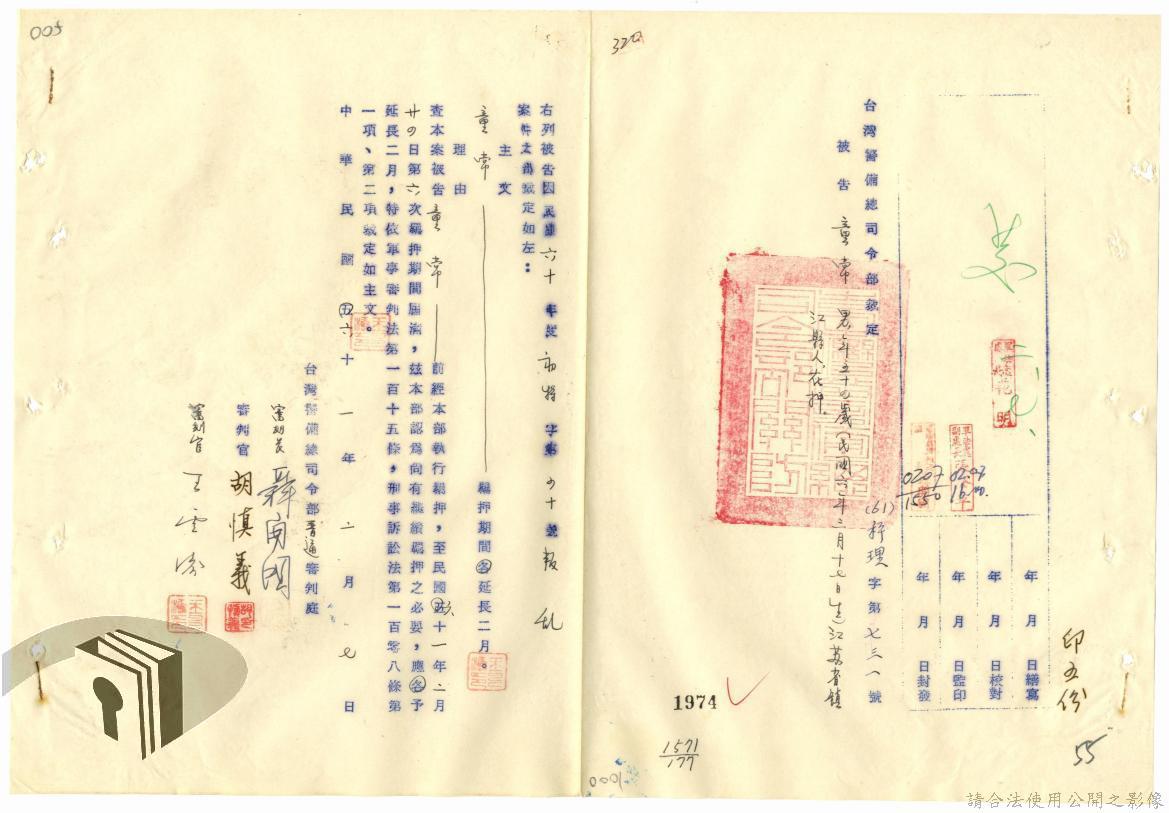 320
印五份
55
年 月 日繕寫
年 月 日校對
年 月 日監印
年 月 日封發
0207
1550
02.07
台灣警備總司令部裁定
(61)秤理字第七三一號
被告 童常 男 年五十四歲(民國六年二月十七日生)江蘇省鎮
江縣人在押
1974
1571
177
0001
005
右列被告因民國六十年度初特字第四十號叛乱
案件之書裁定如左：
主文
童常 羈押期間各延長二月。
理由
查本案被告童常 前經本部執行羈押，至民國六十一年二月
廿四日第六次羈押期間屆滿，茲本部認為尚有繼續羈押之必要，應各予
延長二月，特依軍事審判法第一百十五條，刑事訴訟法第一百零八條第
一項、第二項裁定如主文。
中華民國六十一年二月七日
台灣警備總司令部普通審判庭
審判長
審判官 胡慎義
審判官 王雲濤
請合法使用公開之影像